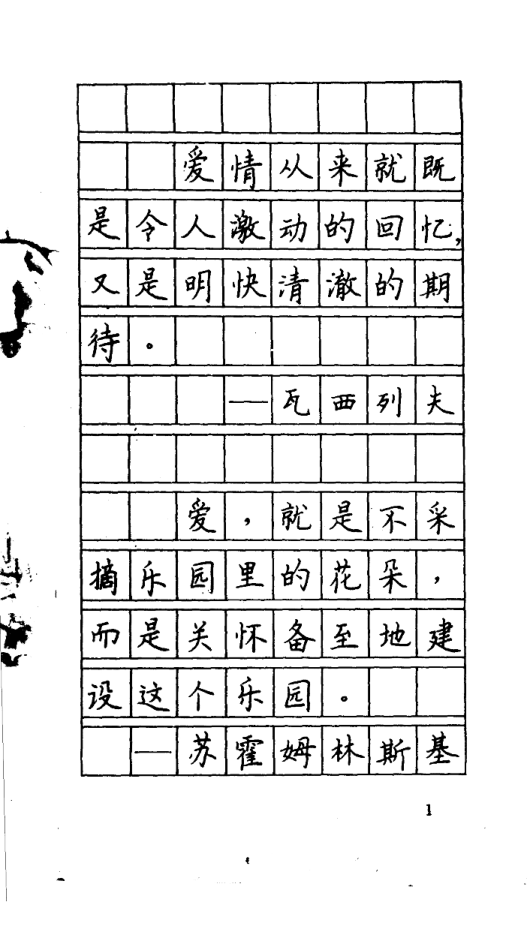 爱情从来就既
是令人激动的回忆，
又是明快清澈的期
待。
——瓦西列夫
爱，就是不采
摘乐园里的花朵，
而是关怀备至地建
设这个乐园。
——苏霍姆林斯基
1